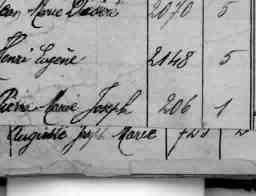 Jean Marie Désiré 2070 5
Henri Eugène 2148 5
Pierre Marie Joseph 206 1
Auguste Joseph Marie